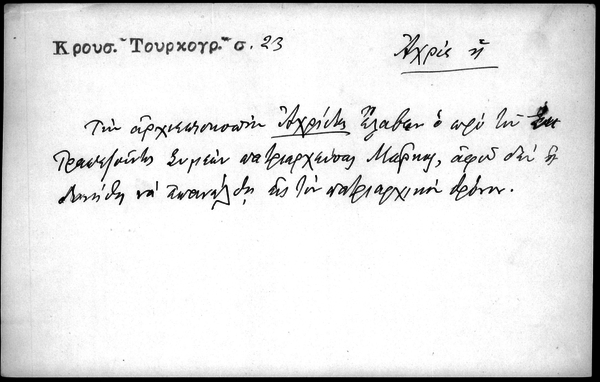 Κρουσ. "Τουρκογρ." σ. 23
Ἀχρίς ἡ
Τὴν ἀρχιεπισκοπὴν Ἀχρίδος ἔλαβεν ὁ πρὸ τοῦ ἐκ
Τραπεζοῦντος Συμεὼν πατριαρχεύσας Μᾶρκος, ἀφοῦ δὲν
ἐδυνήθη νὰ ἐπανέλθῃ εἰς τὸν πατριαρχικὸν θρόνον.